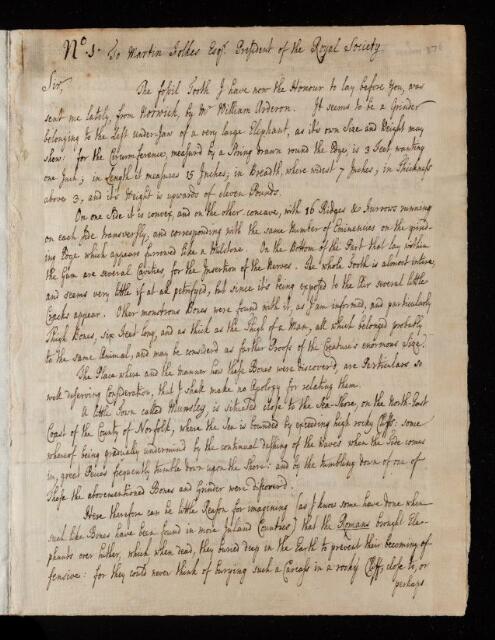 No. 1. To Martin Folkes Esqr. President of the Royal Society
Sir,
The fossil Tooth I have now the Honour to lay before You, was
sent me lately, from Norwich, by Mr William Arderon. It seems to be a Grinder
belonging to the Left underjaw of a very large Elephant, as it's own Size and Weight may
shew: for the Circumference, measur'd by a String drawn round the Edge, is 3 Feet wanting
one Inch; in length it measures 15 Inches; in Breadth, where widest 7 Inches; in Thickness
above 3, and it's Weight is upwards of eleven Pounds.
On one Side it is convex, and on the other concave, with 16 Ridges & Furrows running
on each side transversly, and corresponding with the same Number of Eminences on the grind-
ing Edge which appears furrowed like a Milstone. On the Bottom of the Part that lay within
the Gum are several Cavities, for the Insertion of the Nerves. The whole Tooth is almost intire,
and seems very little if at all petrifyed, but since it's being exposed to the Air several little
Cracks appear. Other monstrous Bones were found with it, as I am informed, and particularly
Thigh Bones, six Feet long, and as thick as the Thigh of a Man, all which belonged probably
to the same Animal, and may be considered as further Proofs of the Creature's enormous Size.
The Place where and the manner how these Bones were discovered, are Particulars so
well deserving Consideration, that I shall make no Apology for relating them.
A little Town called Munsley, is situated close to the Sea-Shore, on the North-East
Coast of the County of Norfolk, where the Sea is bounded by exceeding high rocky Cliffs: some
whereof being gradually undermin'd by the continual dashing of the Waves when the Tide comes
in, great Pieces frequently tumble down upon the Shore: and by the tumbling down of one of
these the abovementioned Bones and Grinder were discovered.
Here therefore can be little Reason for imagining (as I know some have done when
such like Bones have been found in more Inland Countries) that the Romans brought Ele-
phants over hither, which when dead, they buried deep in the Earth to prevent their becoming of-
fensive: for they could never think of burying such a Carcass in a rocky Cliff, close to, or
perhaps